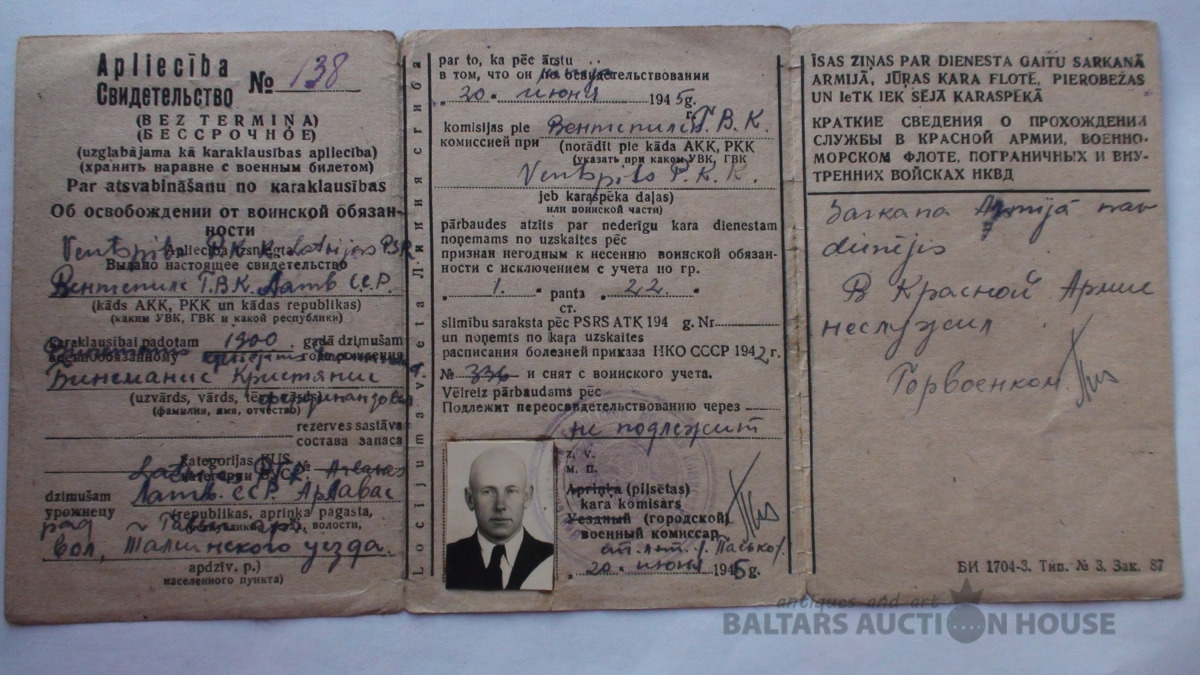 Apliecība
Свидетельство № 138
(BEZ TERMIŅA)
(БЕССРОЧНОЕ)
(uzglabājama kā karaklausības apliecība)
(хранить наравне с военным билетом)
Par atsvabināšanu no karaklausības
Об освобождении от воинской обязан-
ности
Ventspils P.K.K. Latvijas PSR
Apliecība izsniegta
Выдано настоящее свидетельство
Вентспилс Г.В.К. Латв С.С.Р.
(kāds AKK, PKK un kādas republikas)
(каким УВК, ГВК и какой республики)
karaklausībai padotam 1900 gadā dzimušam
военнообязанному года рождения
Бинеманис Кристянис
(uzvārds, vārds, tēva vārds)
(фамилия, имя, отчество)
rezerves sastāva
состава запаса
kategorijas KUS №
Latvijas PSR Arlavas
dzimušam Латв. ССР. Арлавас
урожнецу (republikas, apriņķa pagasta,
волости,
вол, Талсинского уезда.
apdzīv. p.)
населенного пункта)
Locījuma vieta Линия сгиба
par to, ka pēc ārstu
в том, что он освидетельствовании
„20" июня 1945 g.
г.
komisijas pie Вентспилс Г.В.К.
комиссией при (norādīt pie kāda AKK, PKK
(указать при каком УВК, ГВК
Ventspils P.K.K.
jeb karaspēka daļas)
или воинской части)
pārbaudes atzīts par nederīgu kara dienestam
noņemams no uzskaites pēc
признан негодным к несению воинской обязан-
ности с исключением с учета по гр.
„ 1. " panta „ 22. "
ст.
slimību saraksta pēc PSRS ATK 194 g. Nr.
un noņemts no kara uzskaites
расписания болезней приказа НКО СССР 1942 г.
№ 336 и снят с воинского учета.
Vēlreiz pārbaudāms pēc
Подлежит переосвидетельствованию через
не подлежит
z. v.
м. п.
Apriņķa (pilsētas)
kara komisārs
Уездный (городской)
военный комиссар
ст. лет. /Пасько/
„20" июня 1945 g.
ĪSAS ZIŅAS PAR DIENESTA GAITU SARKANĀ
ARMIJĀ, JŪRAS KARA FLOTĒ, PIEROBEŽAS
UN IeTK IEKŠĒJĀ KARASPĒKĀ
КРАТКИЕ СВЕДЕНИЯ О ПРОХОЖДЕНИИ
СЛУЖБЫ В КРАСНОЙ АРМИИ, ВОЕННО-
МОРСКОМ ФЛОТЕ, ПОГРАНИЧНЫХ И ВНУ-
ТРЕННИХ ВОЙСКАХ НКВД
Sarkana Armijā nav
dienējis
В Красной Армие
неслужил
Горвоенком
БИ 1704-3. Тип. № 3, Зак. 87
antiques and art
BALTARS AUCTION HOUSE